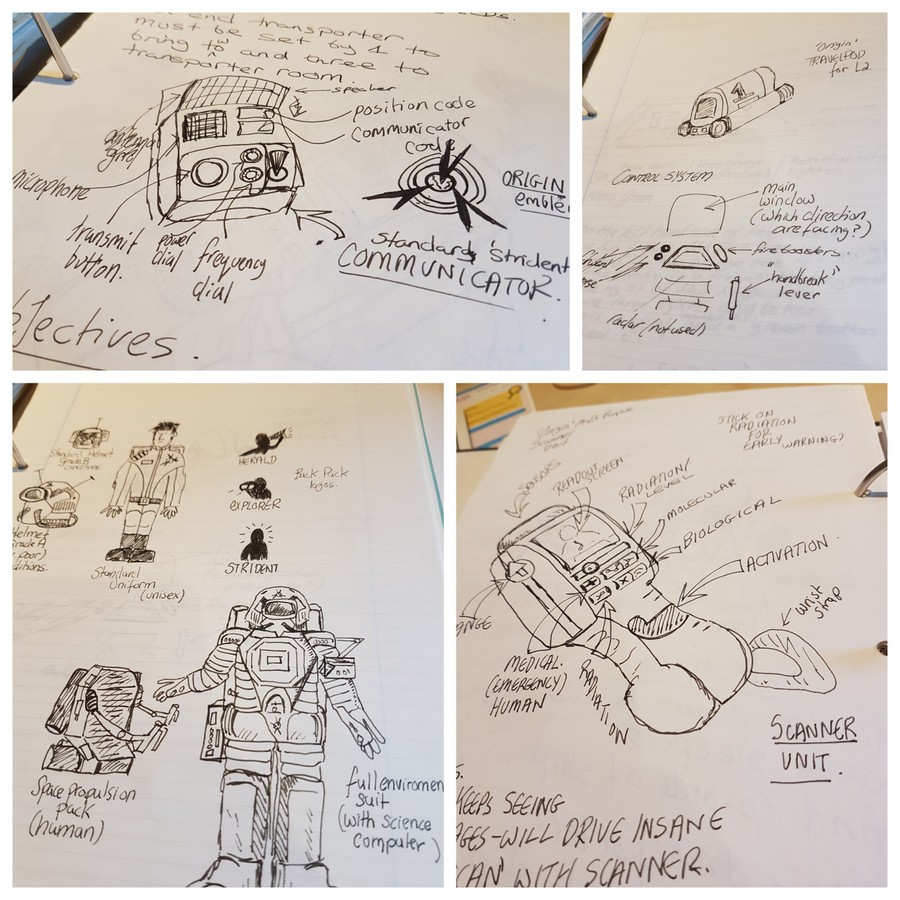 end transporter
must be set by 1 to
bring to and three to
transporter room.
speaker
position code
communicator
code
microphone
transmit
button.
power
dial
frequency
dial
ORIGIN
emble
Standard 'Strident
COMMUNICATOR.
jectives.
'origin'
TRAVELPOD
for L2.
1
CONTROL SYSTEM
main
window
(which direction
are facing?)
fire boosters.
"handbreak"
lever
radar (not used)
Standard Helmet
Grade B
conditions
Helmet
Grade A
(poor)
ditions.
Standard
Uniform
(unisex)
HERALD
EXPLORER
STRIDENT
Back Pack
logos.
Space propulsion
pack
(human)
full enviromen
suit
(with science
Computer)
STICK ON
RADIATION
FOR
EARLY WARNING?
SENSORS
READOUT
SCREEN
RADIATION/
LEVEL
MOLECULAR
BIOLOGICAL
ACTIVATION.
WRIST
STRAP
NGE
MEDICAL.
(EMERGENCY)
HUMAN
RADIATION
SCANNER
UNIT.
S.
KEEPS SEEING
AGES-WILL DRIVE INSANE
CAN' WITH SCANNER.